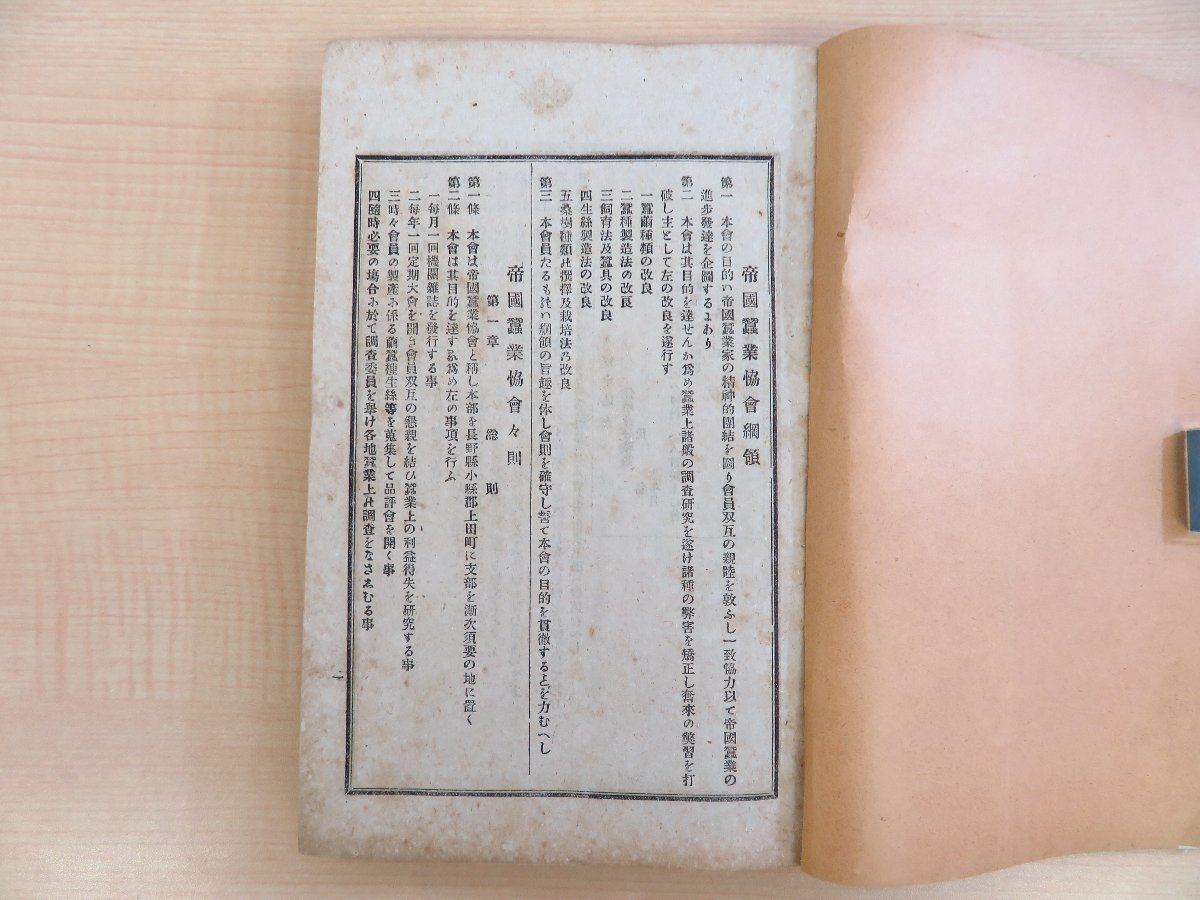 帝國蠶業協會綱領
第一 本會の目的ハ帝國蠶業家の精神的團結を圖り會員双互の親睦を敦ふし一致恊力以て帝國蠶業の
進步發達を企圖するにあり
第二 本會は其目的を達せんか爲め蠶業上諸般の調査硏究を遂け諸種の弊害を矯正し舊來の弊習を打
破し主として左の改良を遂行す
一蠶繭種類の改良
二蠶種製造法の改良
三飼育法及蠶具の改良
四生絲製造法の改良
五桑樹種類の撰擇及栽培法の改良
第三 本會員たるものハ綱領の旨趣を体し會則を確守し誓て本會の目的を貫徹することを力むへし
帝國蠶業恊會々則
第一章 總則
第一條 本會は帝國蠶業協會と稱し本部を長野縣小縣郡上田町に支部を漸次須要の地に置く
第二條 本會は其目的を達する爲め左の事項を行ふ
一每月一回機關雜誌を發行する事
二每年一回定期大會を開き會員双互の懇親を結ひ蠶業上の利益得失を硏究する事
三時々會員の製產に係る繭蠶種生絲等を蒐集して品評會を開く事
四隨時必要の塲合に於て調査委員を擧け各地蠶業上の調査をなさしむる事
一